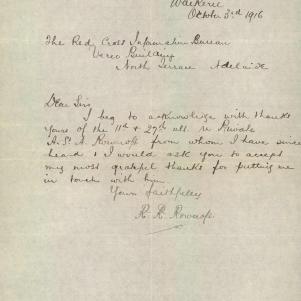 Waikerie
October 3rd 1916
The Red Cross Information Bureau
Verco Building
North Terrace Adelaide
Dear Sir,
I beg to acknowledge with thanks
yours of the 11th & 27th ult. re Private
A. S. A. Rowcroft from whom I have since
heard & I would ask you to accept
my most grateful thanks for putting me
in touch with him
Yours faithfully
R. R. Rowcroft